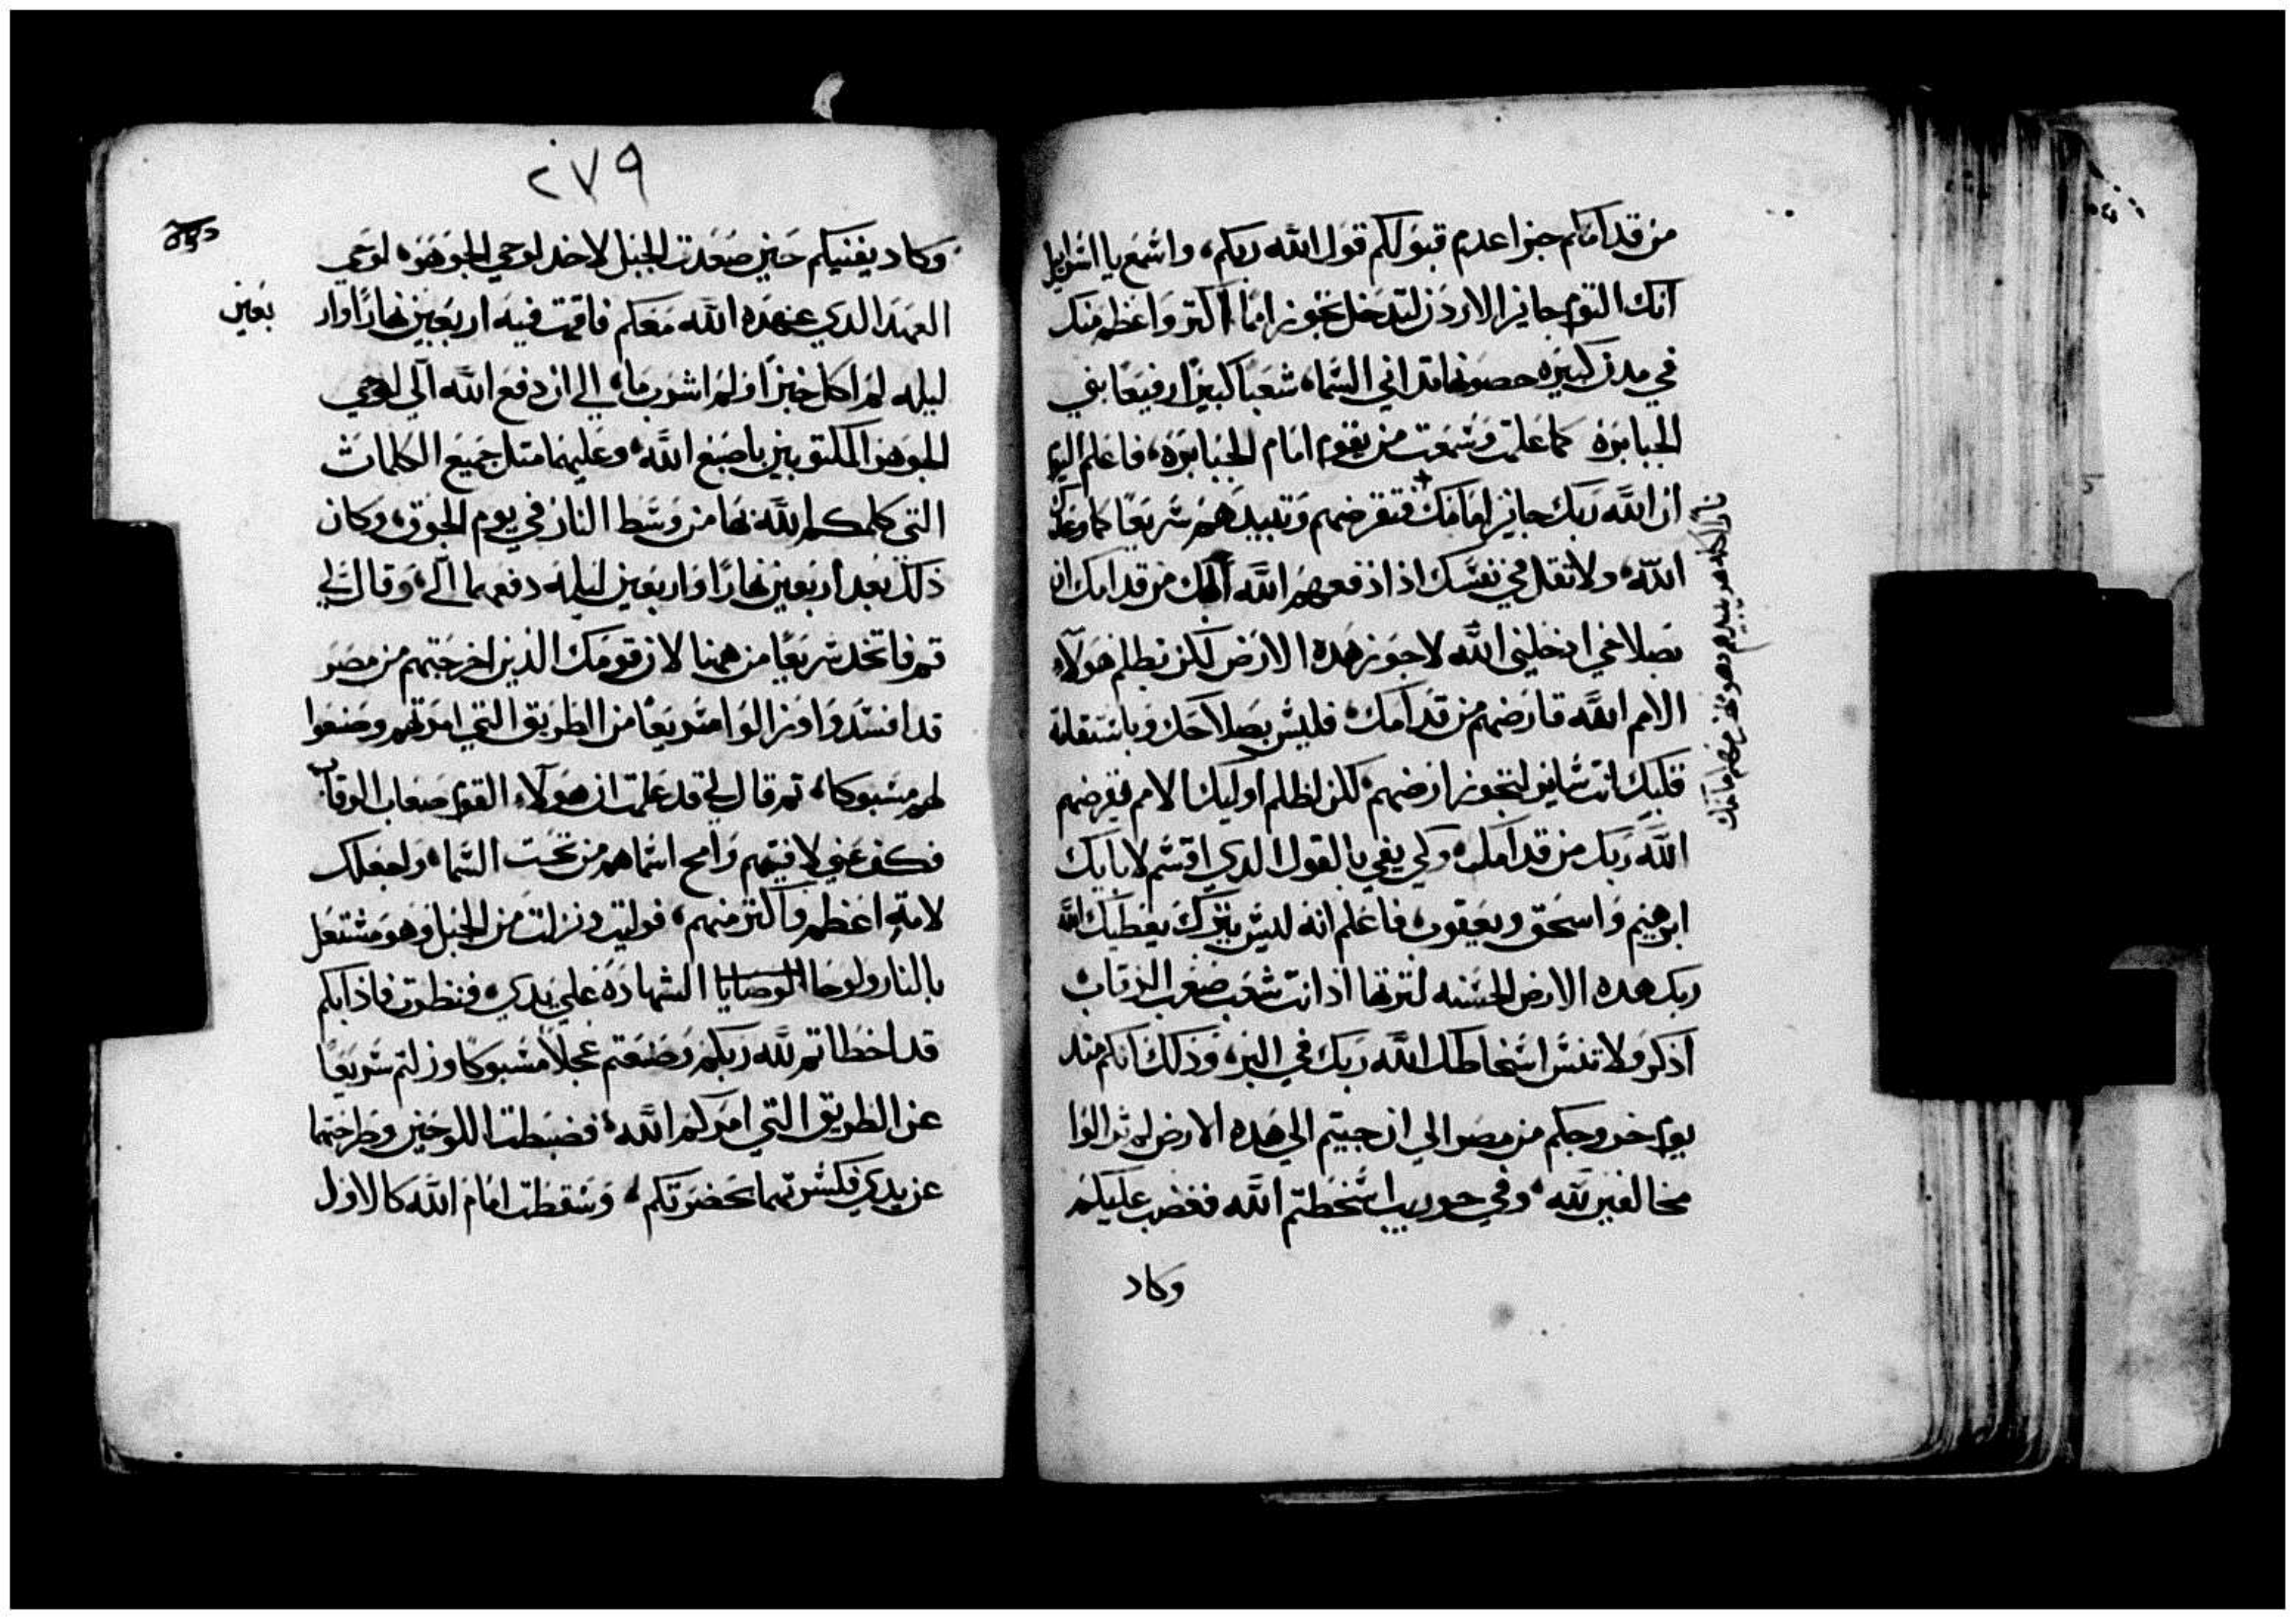 من قدامكم جزا عدم قبولكم قول الله ربكم، واسمع يا اسرايل
انك اليوم جايز الاردن لتدخل تجوز امما اكثر واعظم منك
في مدن كبيره حصونها تداني السماء شعبا كبيرا رفيعا بني
الجبابره كما علمت وسمعت من يقوم امام الجبابره، فاعلم اليوم
ان الله ربك جايز امامك فتقرضهم وتبيدهم سريعا كما وعدك
الله، ولا تقل في نفسك اذا دفعهم الله الهك من قدامك ان
بصلاحي ادخلني الله لاجوز هده الارض لكن بظلم هولاء
الامم الله قارضهم من قدامك، فليس بصلاحك وباستقامة
قلبك انت سايق لتجوز ارضهم، لكن لظلم اوليك الامم يقرضهم
الله ربك من قدامك، ولكي يفي بالقول الدي اقسم لابايك
ابرهيم واسحق ويعقوب، فاعلم انه ليس ببرك يعطيك الله
ربك هده الارض الحسنه لترتها اذ انت شعب صعب الرقاب
اذكر ولا تنس اسخاطك الله ربك في البر، وذلك انكم مند
يوم خروجكم من مصر الي ان جيتم الي هده الارض لم تزالوا
مخالفين لله، وفي حوريب اسخطتم الله فغضب عليكم
وكاد
٢٧٩
وكاد يفنيكم حين صعدت الجبل لاخد لوحي الجوهره لوحي
العهد الدي عهده الله معكم فاقمت فيه اربعين نهارا وار
بعين
ليله لم اكل خبزا ولم اشرب ماء، الي ان دفع الله الي لوحي
الجوهر المكتوبين باصبع الله، وعليهما متل جميع الكلمات
التي كلمكم الله بها من وسط النار في يوم الجوق، وكان
ذلك بعد اربعين نهارا واربعين ليله دفعهما الي، وقال لي
قم فاتخد سريعا من ههنا لان قومك الذين اخرجتهم من مصر
قد افسدوا وزالوا سريعا من الطريق التي امرتهم وصنعوا
لهم مسبوكا، تم قال لي قد علمت ان هولاء القوم صعاب الرقاب
فكف عني لافنيهم وامح اسماهم من تحت السماء، واجعلك
لامه اعظم واكثر منهم، فوليت ونزلت من الجبل وهو مشتعل
بالنار ولوحا الوصايا الشهاده علي يدي، فنظرت فاذا بكم
قد اخطاتم لله ربكم وصنعتم عجلا مسبوكا وزلتم سريعا
عن الطريق التي امركم الله، فضبطت اللوحين وطرحتهما
عن يدي فكسرتهما بحضرتكم، وسقطت امام الله كالاول